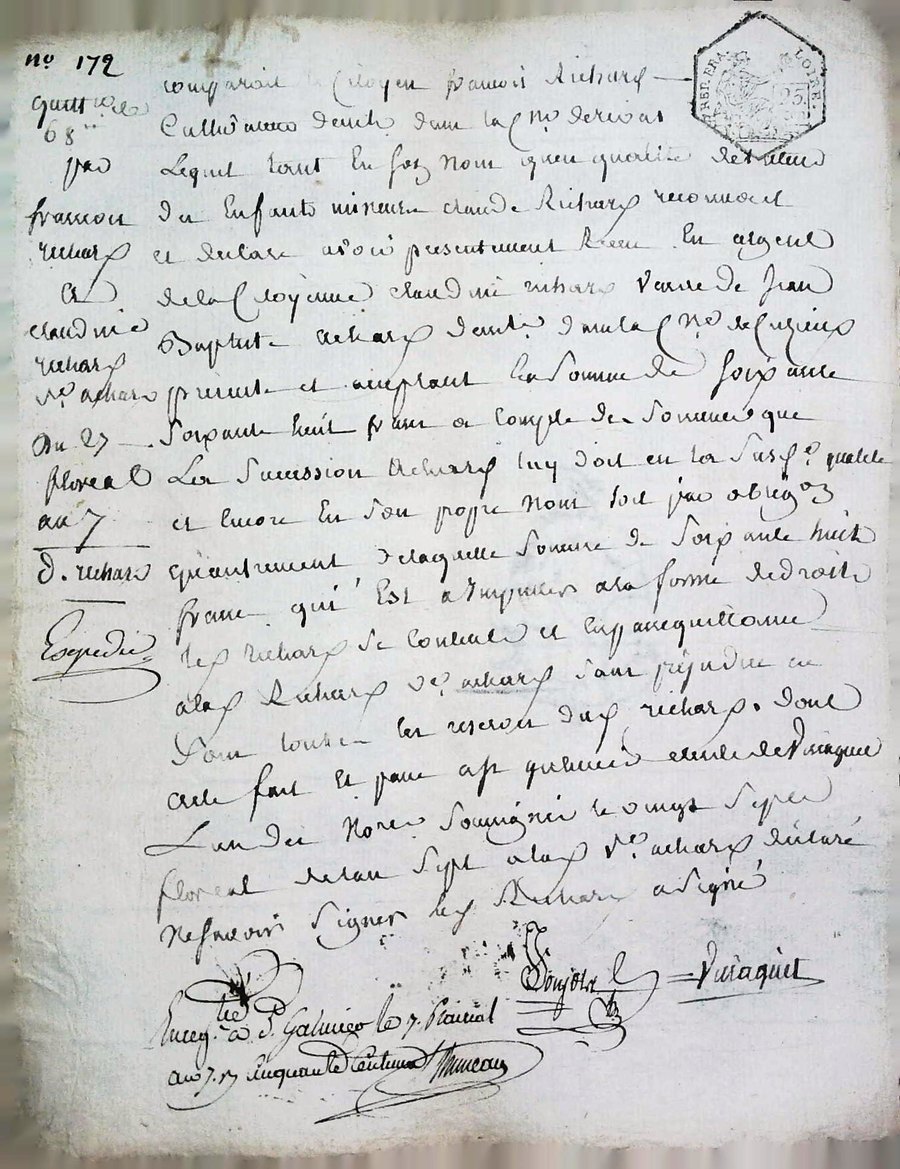 no 172
quitt ce de
68 ++
par
francois
richard
a
claudine
richard
ve achard
du 27
floreal
an 7
d. richard
Expedie
comparait le Citoyen francois Richard
Cultivateur demt dans la Cne de rivas
Lequel tant En son nom qu'en qualité de tuteur
des Enfants mineurs claude Richard reconnoit
et declare avoir presentement Receu En argent
de la Citoyenne claudine richard veuve de Jean
Baptiste achard demte dans la Cne de Cuzieux
presente et acceptant la somme de soixante
soixante huit franc a compte des sommes que
La succession achard luy doit en la susd e qualité
et encore En son propre nom soit par obligon
qu'autrement de laquelle somme de soixante huit
franc qui Est a Imputer a la forme de droit
led richard se contente et en passe quittance
a lad Richard ve achard sans prejudice en
tout les reserves dud richard. dont
acte fait et passé
L'un des Nores soussignés le vingt sept
floreal de l'an sept a lad ve achard declaré
ne savoir signer led Richard a signé
REP. FRA.
LOIRE.
25
Enreg. à S. Galmier le 7. Prairial
an 7. r cinquante centimes